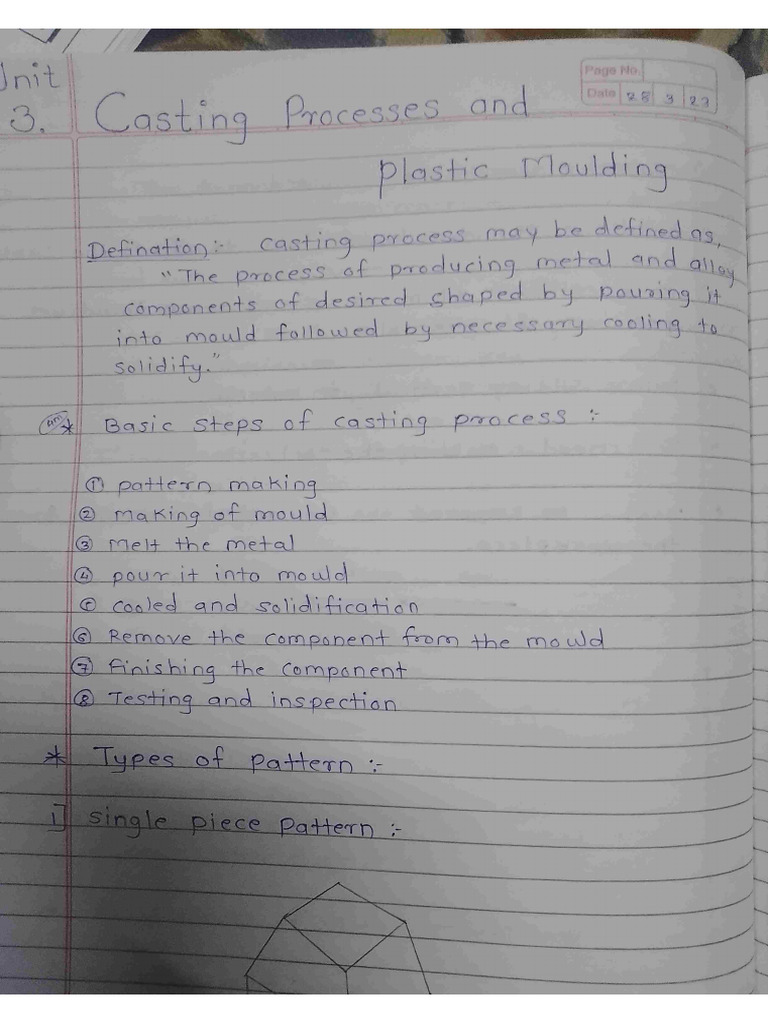 Unit
3.
Casting Processes and
Page No.
Date 28 3 23
Plastic Moulding
Defination:- casting process may be defined as,
"The process of producing metal and alloy
components of desired shaped by pouring it
into mould followed by necessary cooling to
solidify."
* Basic steps of casting process :-
① pattern making
② making of mould
③ Melt the metal
④ pour it into mould
⑤ cooled and solidification
⑥ Remove the component from the mould
⑦ Finishing the component
⑧ Testing and inspection
* Types of pattern :-
i] single piece pattern :-